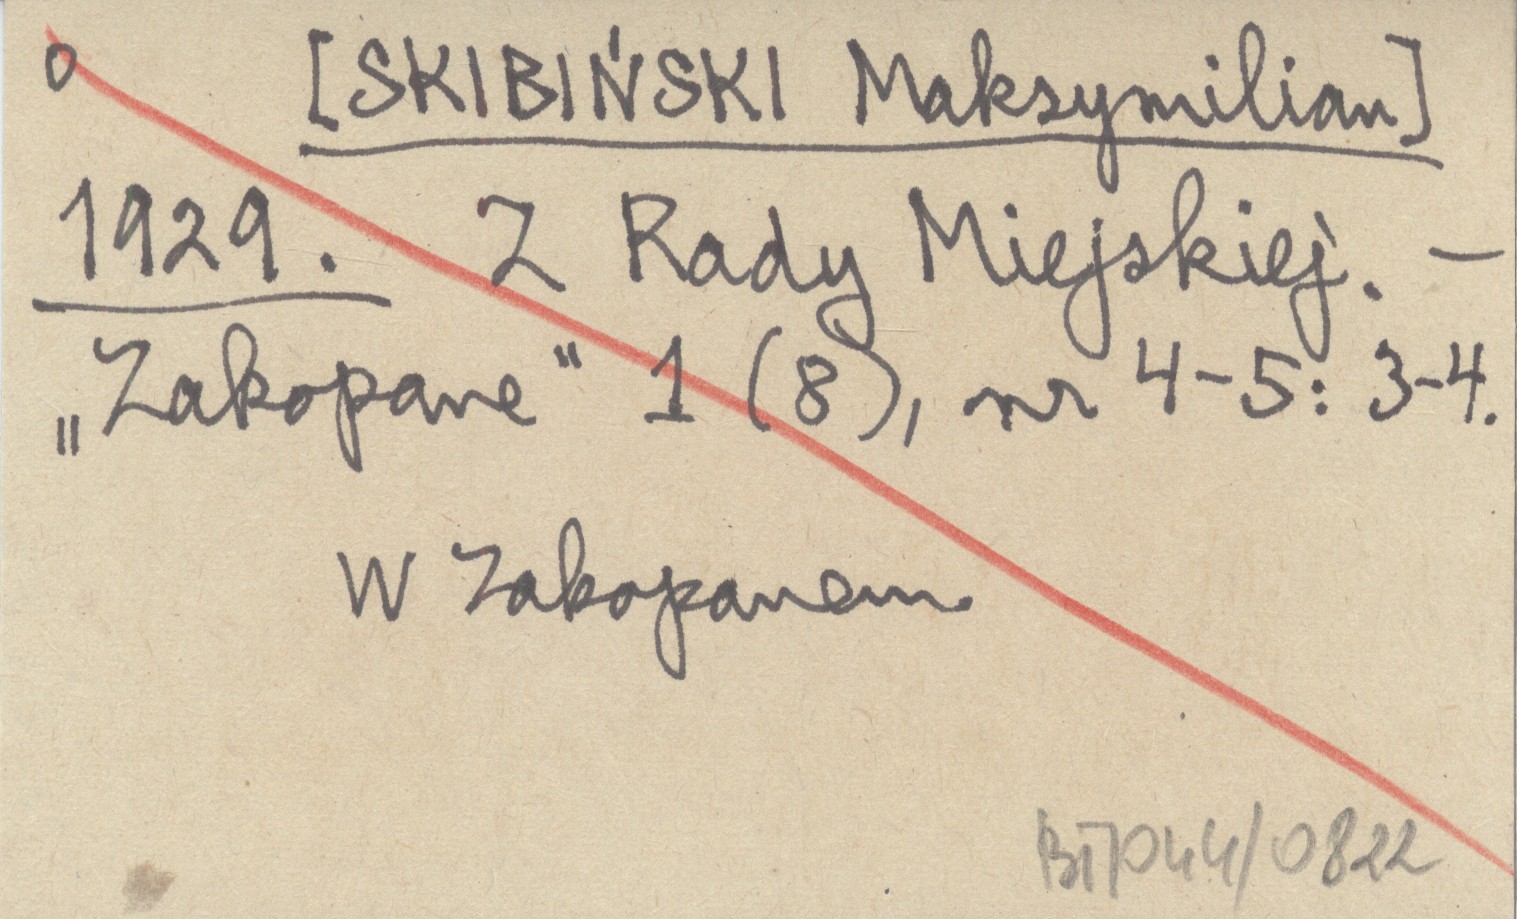 o [SKIBIŃSKI Maksymilian]
1929. Z Rady Miejskiej. –
„Zakopane" 1 (8), nr 4-5: 3-4.
W Zakopanem.
BTP044/0822